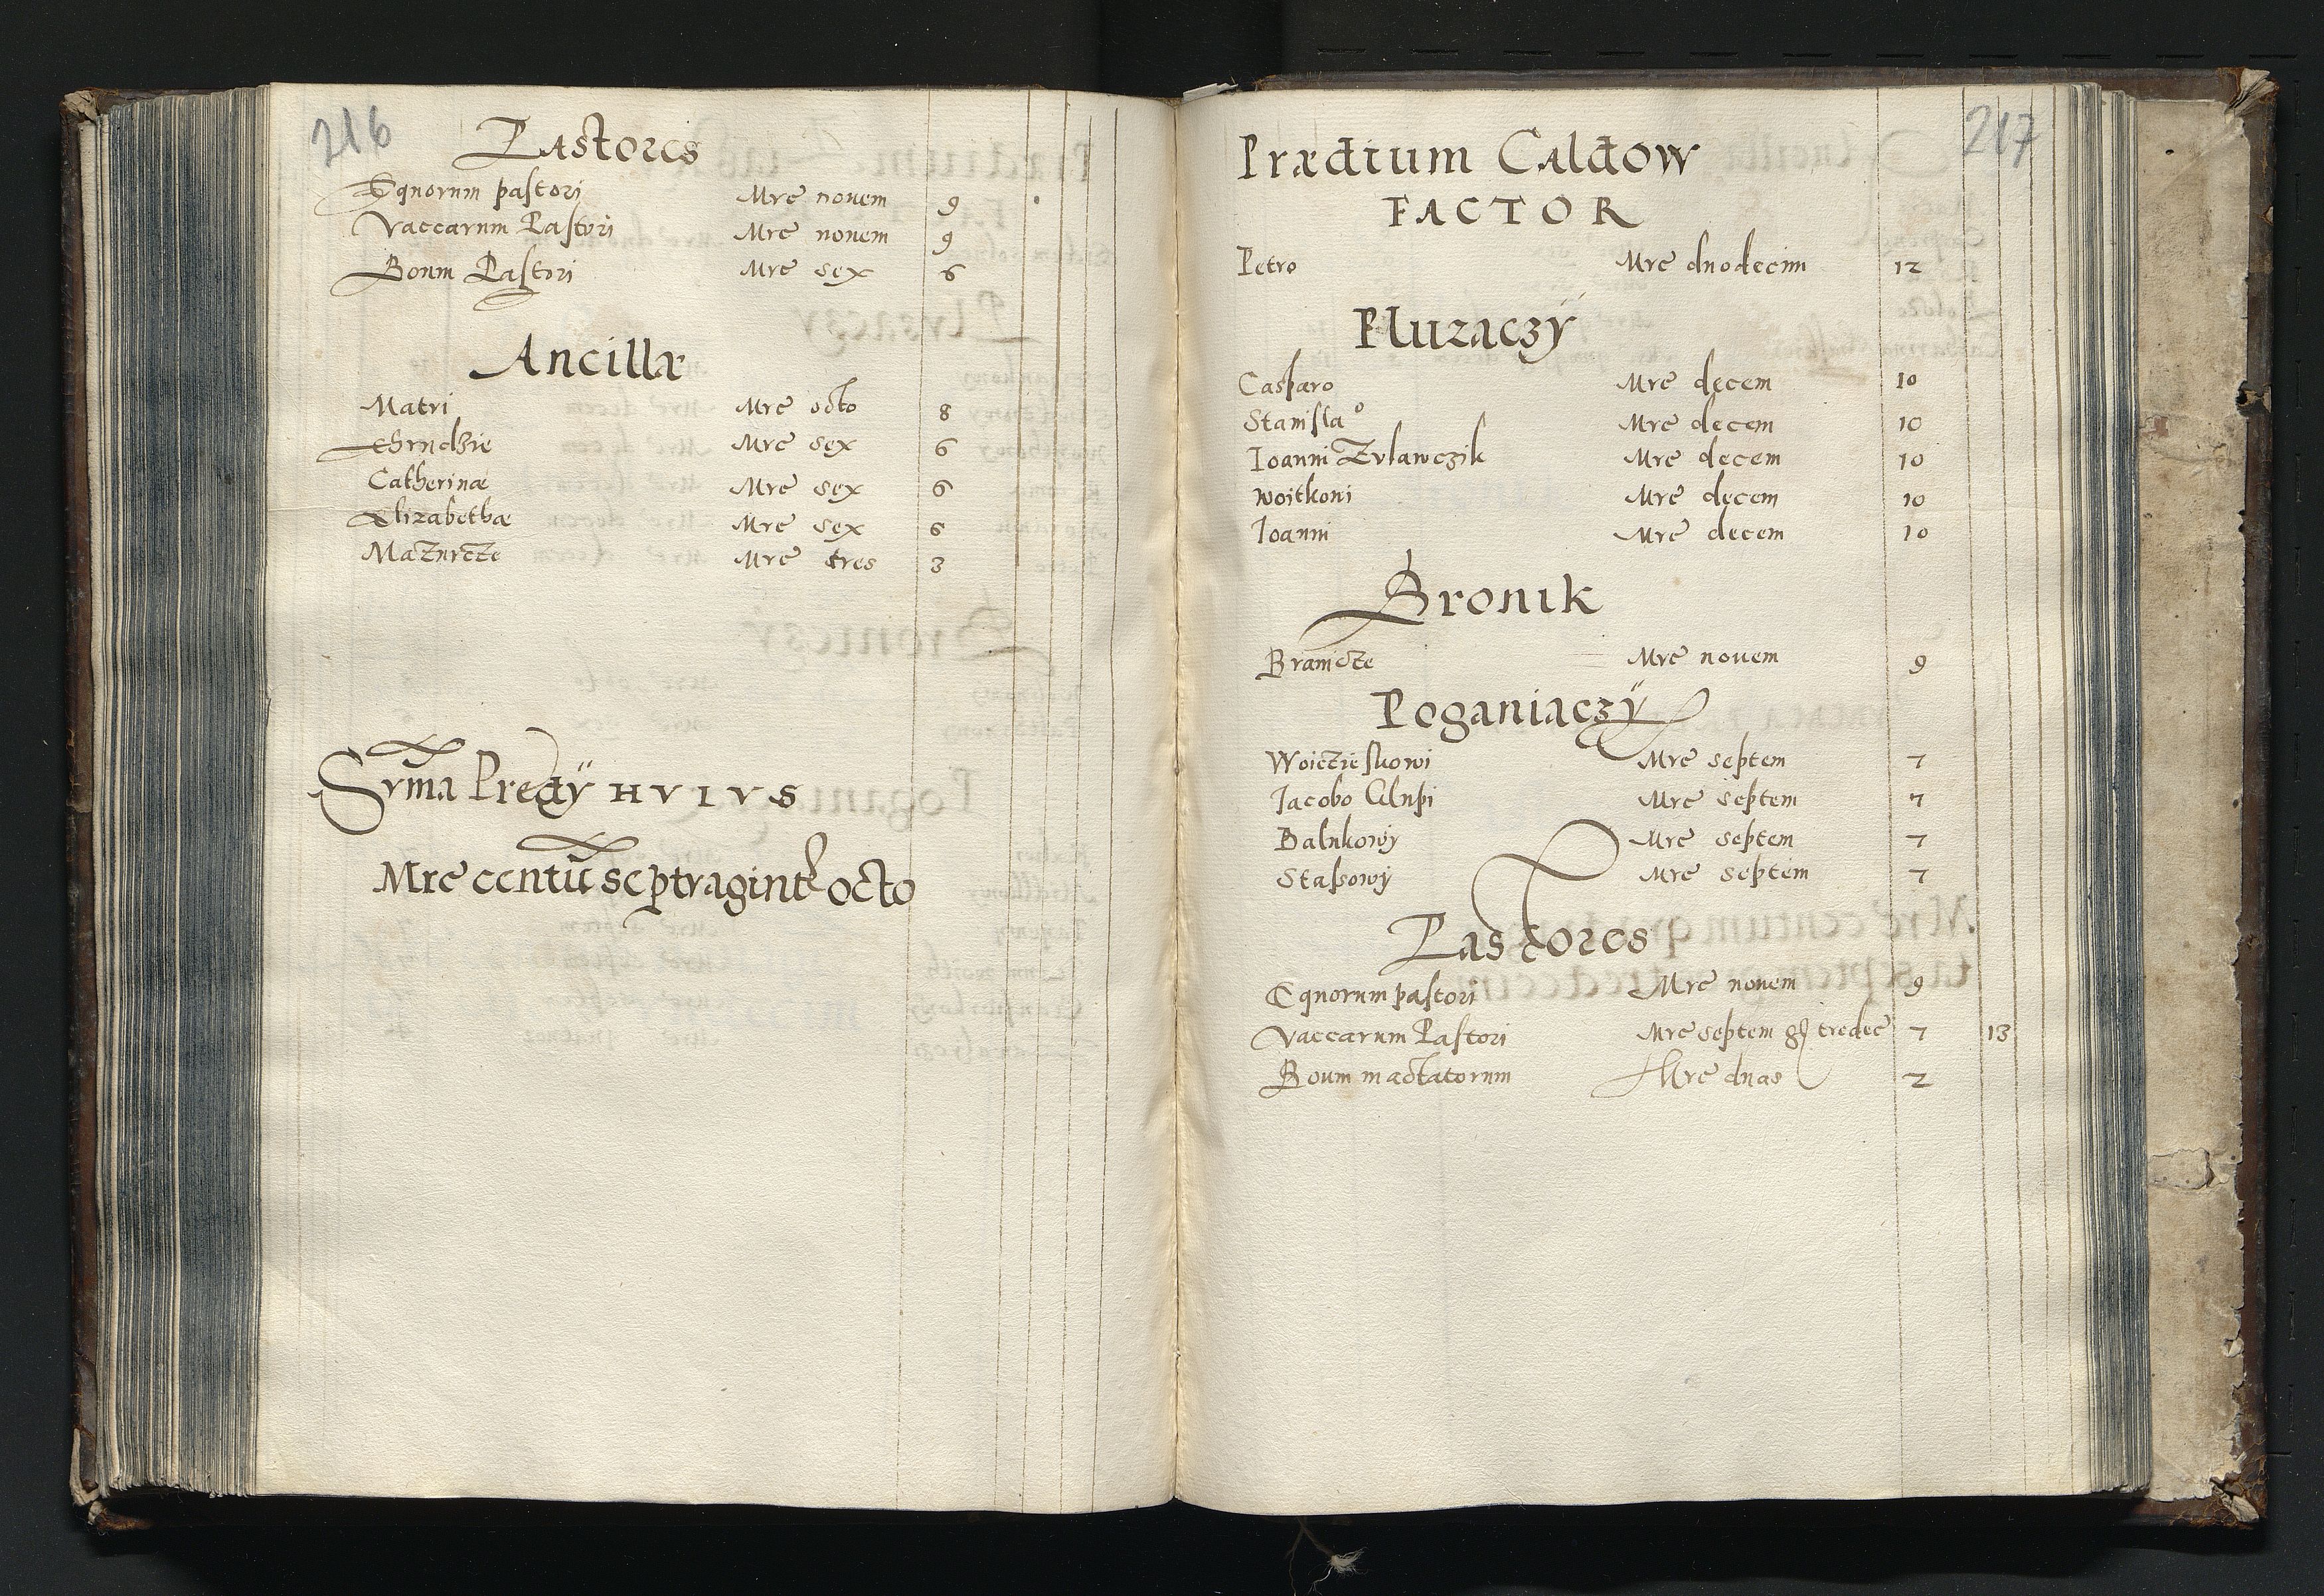 216
Pastores
Equorum pastori Mrc novem 9
Vaccarum Pastori Mrc novem 9
Boum Pastori Mrc sex 6
Ancillæ
Matri Mrc octo 8
Mrc sex 6
Catherinæ Mrc sex 6
Elizabethæ Mrc sex 6
Mazurcze Mrc tres 3
Svma Predÿ HVIVS
Mrc centū septvagint octo
217
Prædium Caldow
FACTOR
Petro Mrc duodecim 12
Pluzaczÿ
Casparo Mrc decem 10
Stanislao Mrc decem 10
Ioanni Zvlawczik Mrc decem 10
Woitkoni Mrc decem 10
Ioanni Mrc decem 10
Bronik
Branicze Mrc novem 9
Poganiaczÿ
Woiczieskowi Mrc septem 7
Jacobo Glupi Mrc septem 7
Balukowÿ Mrc septem 7
Stassowÿ Mrc septem 7
Pastores
Equorum pastori Mrc novem 9
Vaccarum Pastori Mrc septem gs tredec 7 13
Boum mactatorum Mrc duas 2